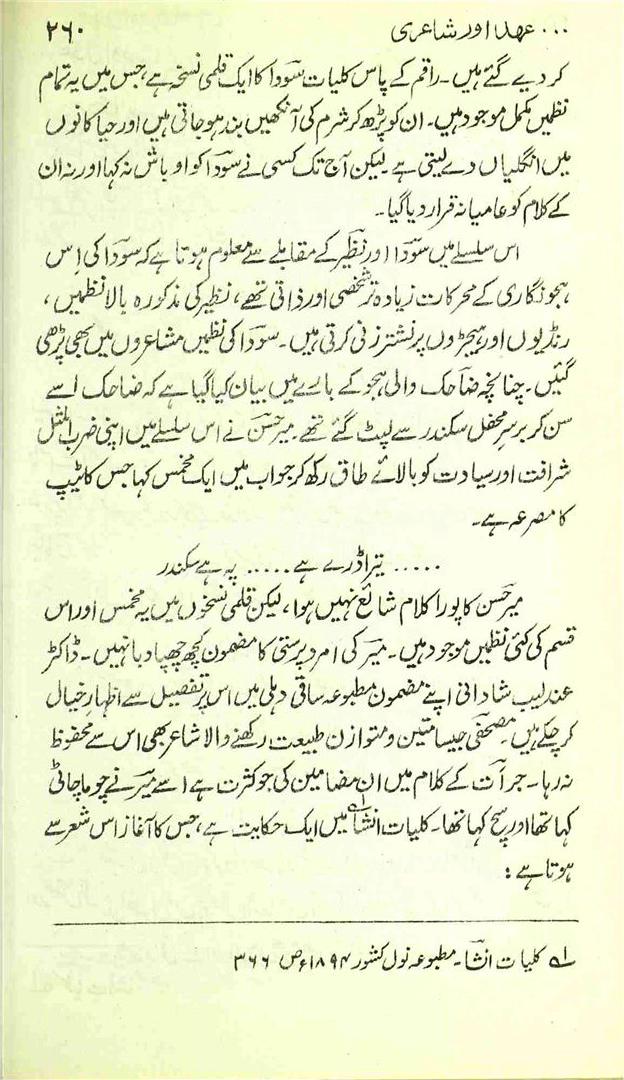 ... عہد اور شاعری ۲۶۰
کر دیے گئے ہیں۔ راقم کے پاس کلیات سوؔدا کا ایک قلمی نسخہ ہے، جس میں یہ تمام
نظمیں مکمل موجود ہیں۔ ان کو پڑھ کر شرم کی آنکھیں بند ہو جاتی ہیں اور حیا کانوں
میں انگلیاں دے لیتی ہے۔ لیکن آج تک کسی نے سوؔدا کو اوباش نہ کہا اور نہ ان
کے کلام کو عامیانہ قرار دیا گیا۔
اس سلسلے میں سوؔدا اور نظیؔر کے مقابلے سے معلوم ہوتا ہے کہ سودا کی اِس
ہجو نگاری کے محرکات زیادہ تر شخصی اور ذاتی تھے، نظیر کی مذکورہ بالا نظمیں،
رنڈیوں اور ہیجڑوں پر نشتر زنی کرتی ہیں۔ سودؔا کی نظمیں مشاعروں میں بھی پڑھی
گئیں۔ چنانچہ ضاحؔک والی ہجو کے بارے میں بیان کیا گیا ہے کہ ضاحک اسے
سن کر برسرِ محفل سکندر سے لپٹ گئے تھے۔ میر حسؔن نے اس سلسلے میں اپنی ضرب المثل
شرافت اور سیادت کو بالائے طاق رکھ کر جواب میں ایک مخمس کہا جس کا ٹیپ
کا مصرعہ ہے۔
..... تیرا ڈرے ہے ..... پہ ہے سکندر
میر حسؔن کا پورا کلام شائع نہیں ہوا، لیکن قلمی نسخوں میں یہ مخمس اور اس
قسم کی کئی نظمیں موجود ہیں۔ میؔر کی امرد پرستی کا مضمون کچھ چھپا دبا نہیں۔ ڈاکٹر
عندلیب شادانی اپنے مضمون مطبوعہ ساقی دہلی میں اس پر تفصیل سے اظہارِ خیال
کر چکے ہیں۔ مصحفؔی جیسا متین و متوازن طبیعت رکھنے والا شاعر بھی اس سے محفوظ
نہ رہا۔ جرأؔت کے کلام میں ان مضامین کی جو کثرت ہے اسے میؔر نے چوما چاٹی
کہا تھا اور سچ کہا تھا۔ کلیات انشاؔ؎۱ میں ایک حکایت ہے، جس کا آغاز اس شعر سے
ہوتا ہے:
؎۱ کلیات انشاؔ۔ مطبوعہ نول کشور ۱۸۹۴ء ص ۳۶۶